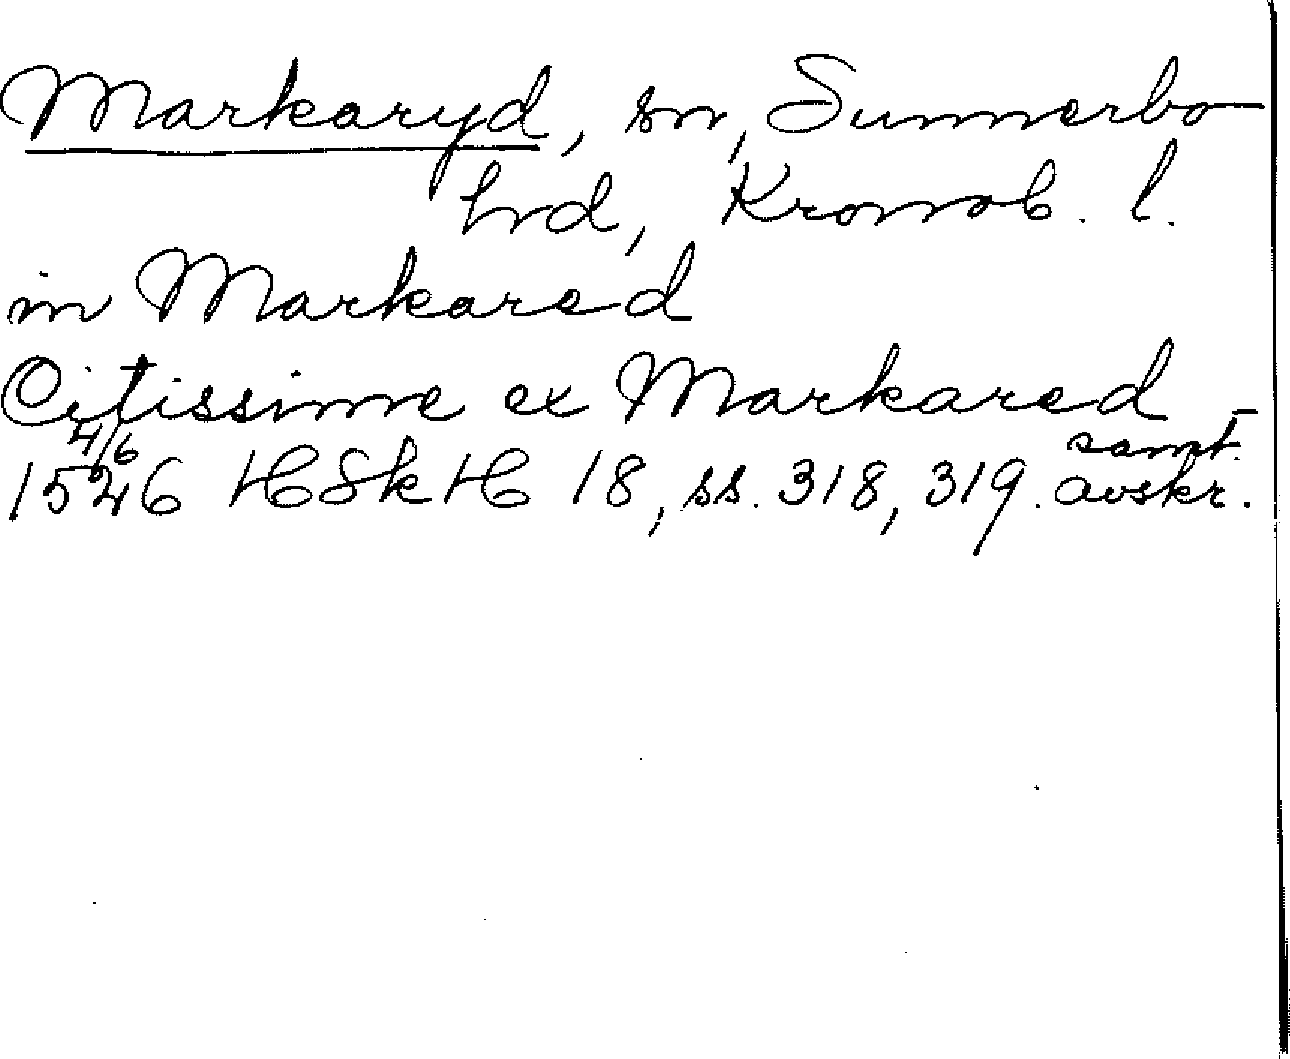 Markaryd, sn, Sunnerbo
hrd, Kronob. l.
in Markared
Citissime ex Markared -
4/6 samt.
1526 HSkH 18, ss. 318, 319. avskr.